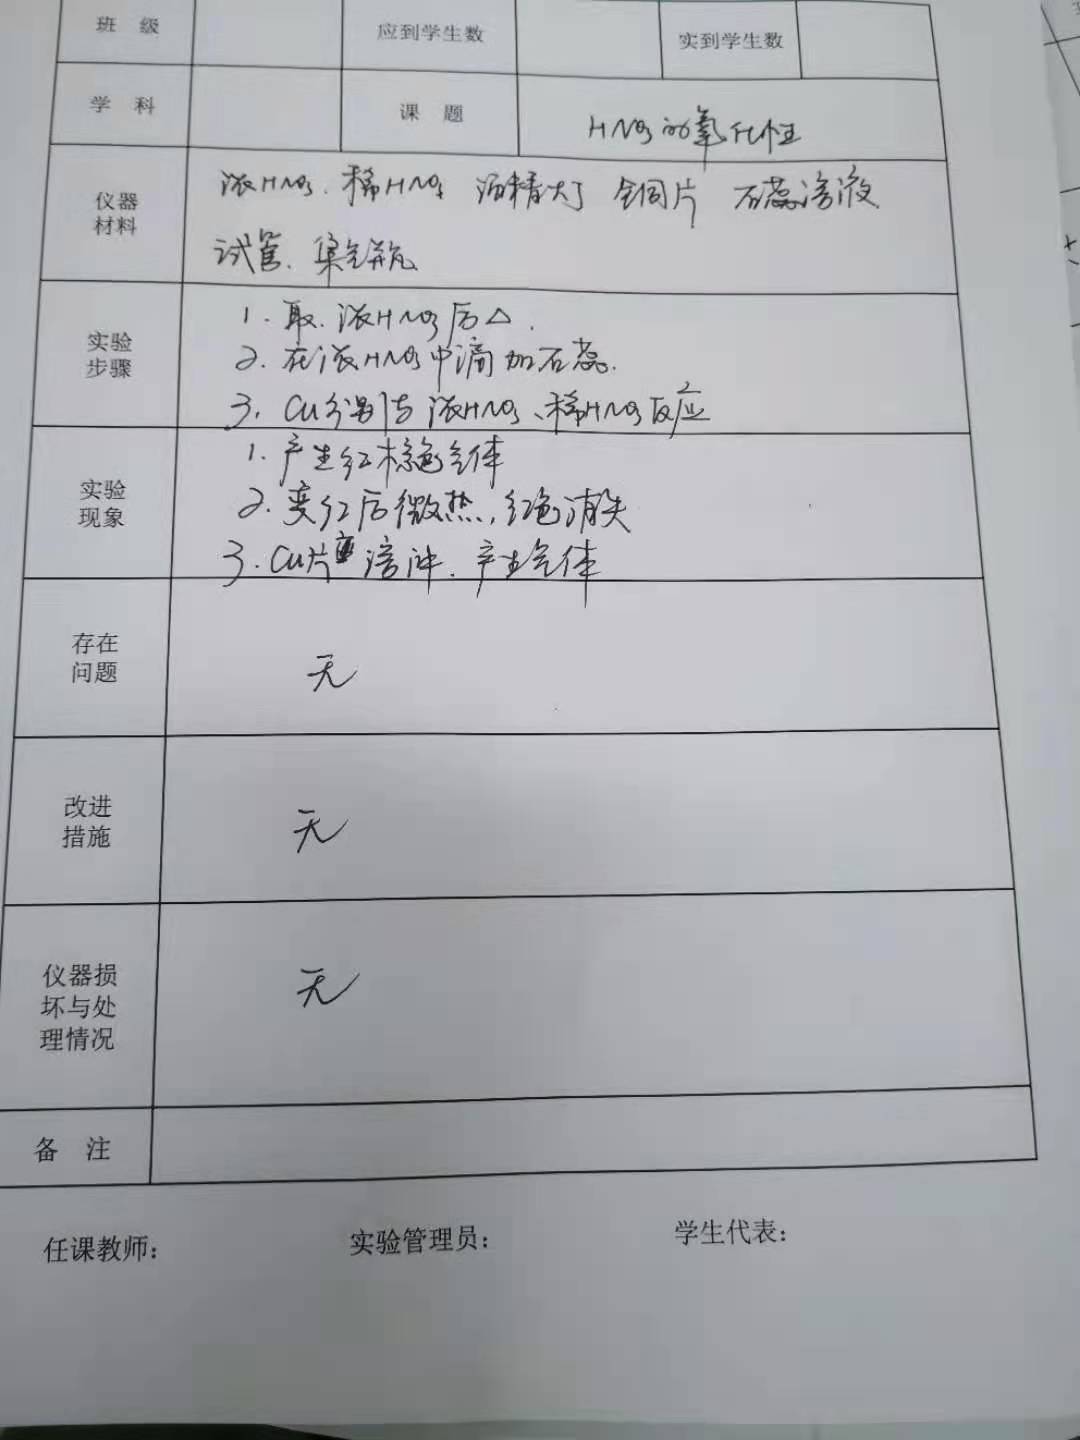 班 级 应到学生数 实到学生数
学 科 课 题 HNO3的氧化性
仪器
材料
浓HNO3、稀HNO3 酒精灯 铜片 石蕊溶液
试管、集气瓶
实验
步骤
1. 取、浓HNO3后△.
2. 在浓HNO3中滴加石蕊.
3. Cu分别与浓HNO3、稀HNO3反应
实验
现象
1. 产生红棕色气体
2. 变红后微热,红色消失
3. Cu片 溶 产生气体
存在
问题
无
改进
措施
无
仪器损
坏与处
理情况
无
备 注
任课教师: 实验管理员: 学生代表: